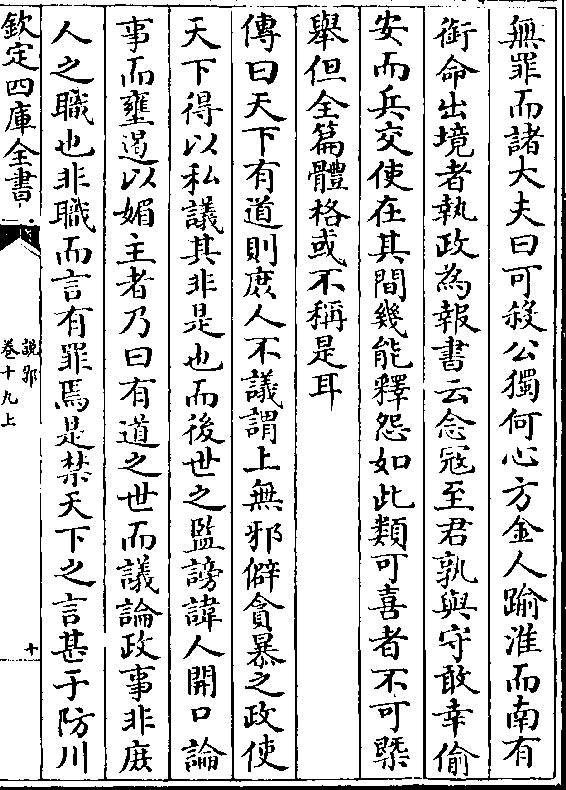 無罪而諸大夫曰可殺公獨何心方金人踰淮而南有
銜命出境者執政為報書云念冦至君孰與守敢幸偷
安而兵交使在其間幾能釋怨如此類可喜者不可槩
舉但全篇體格或不稱是耳
傳曰天下有道則庶人不議謂上無邪僻貪暴之政使
天下得以私議其非是也而後世之監謗諱人開口論
事而壅遏以媚主者乃曰有道之世而議論政事非庶
人之職也非職而言有罪焉是禁天下之言甚于防川
欽定四庫全書
說郛
卷十九上
十